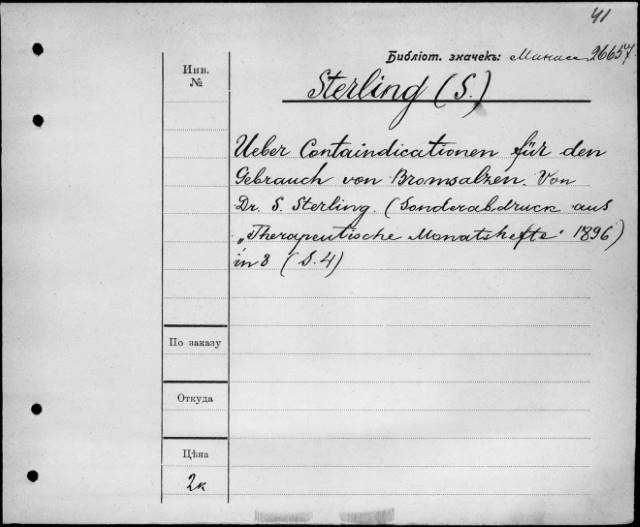 41
Библіот. значекъ: Манас 26657
Инв. №
Sterling (S.)
Ueber Containdicationen für den
Gebrauch von Bromsalzen. Von
Dr. S. Sterling. (Sonderabdruck aus
„Therapeutische Monatshefte" 1896)
in 8 (S. 4)
По заказу
Откуда
Цѣна
2к